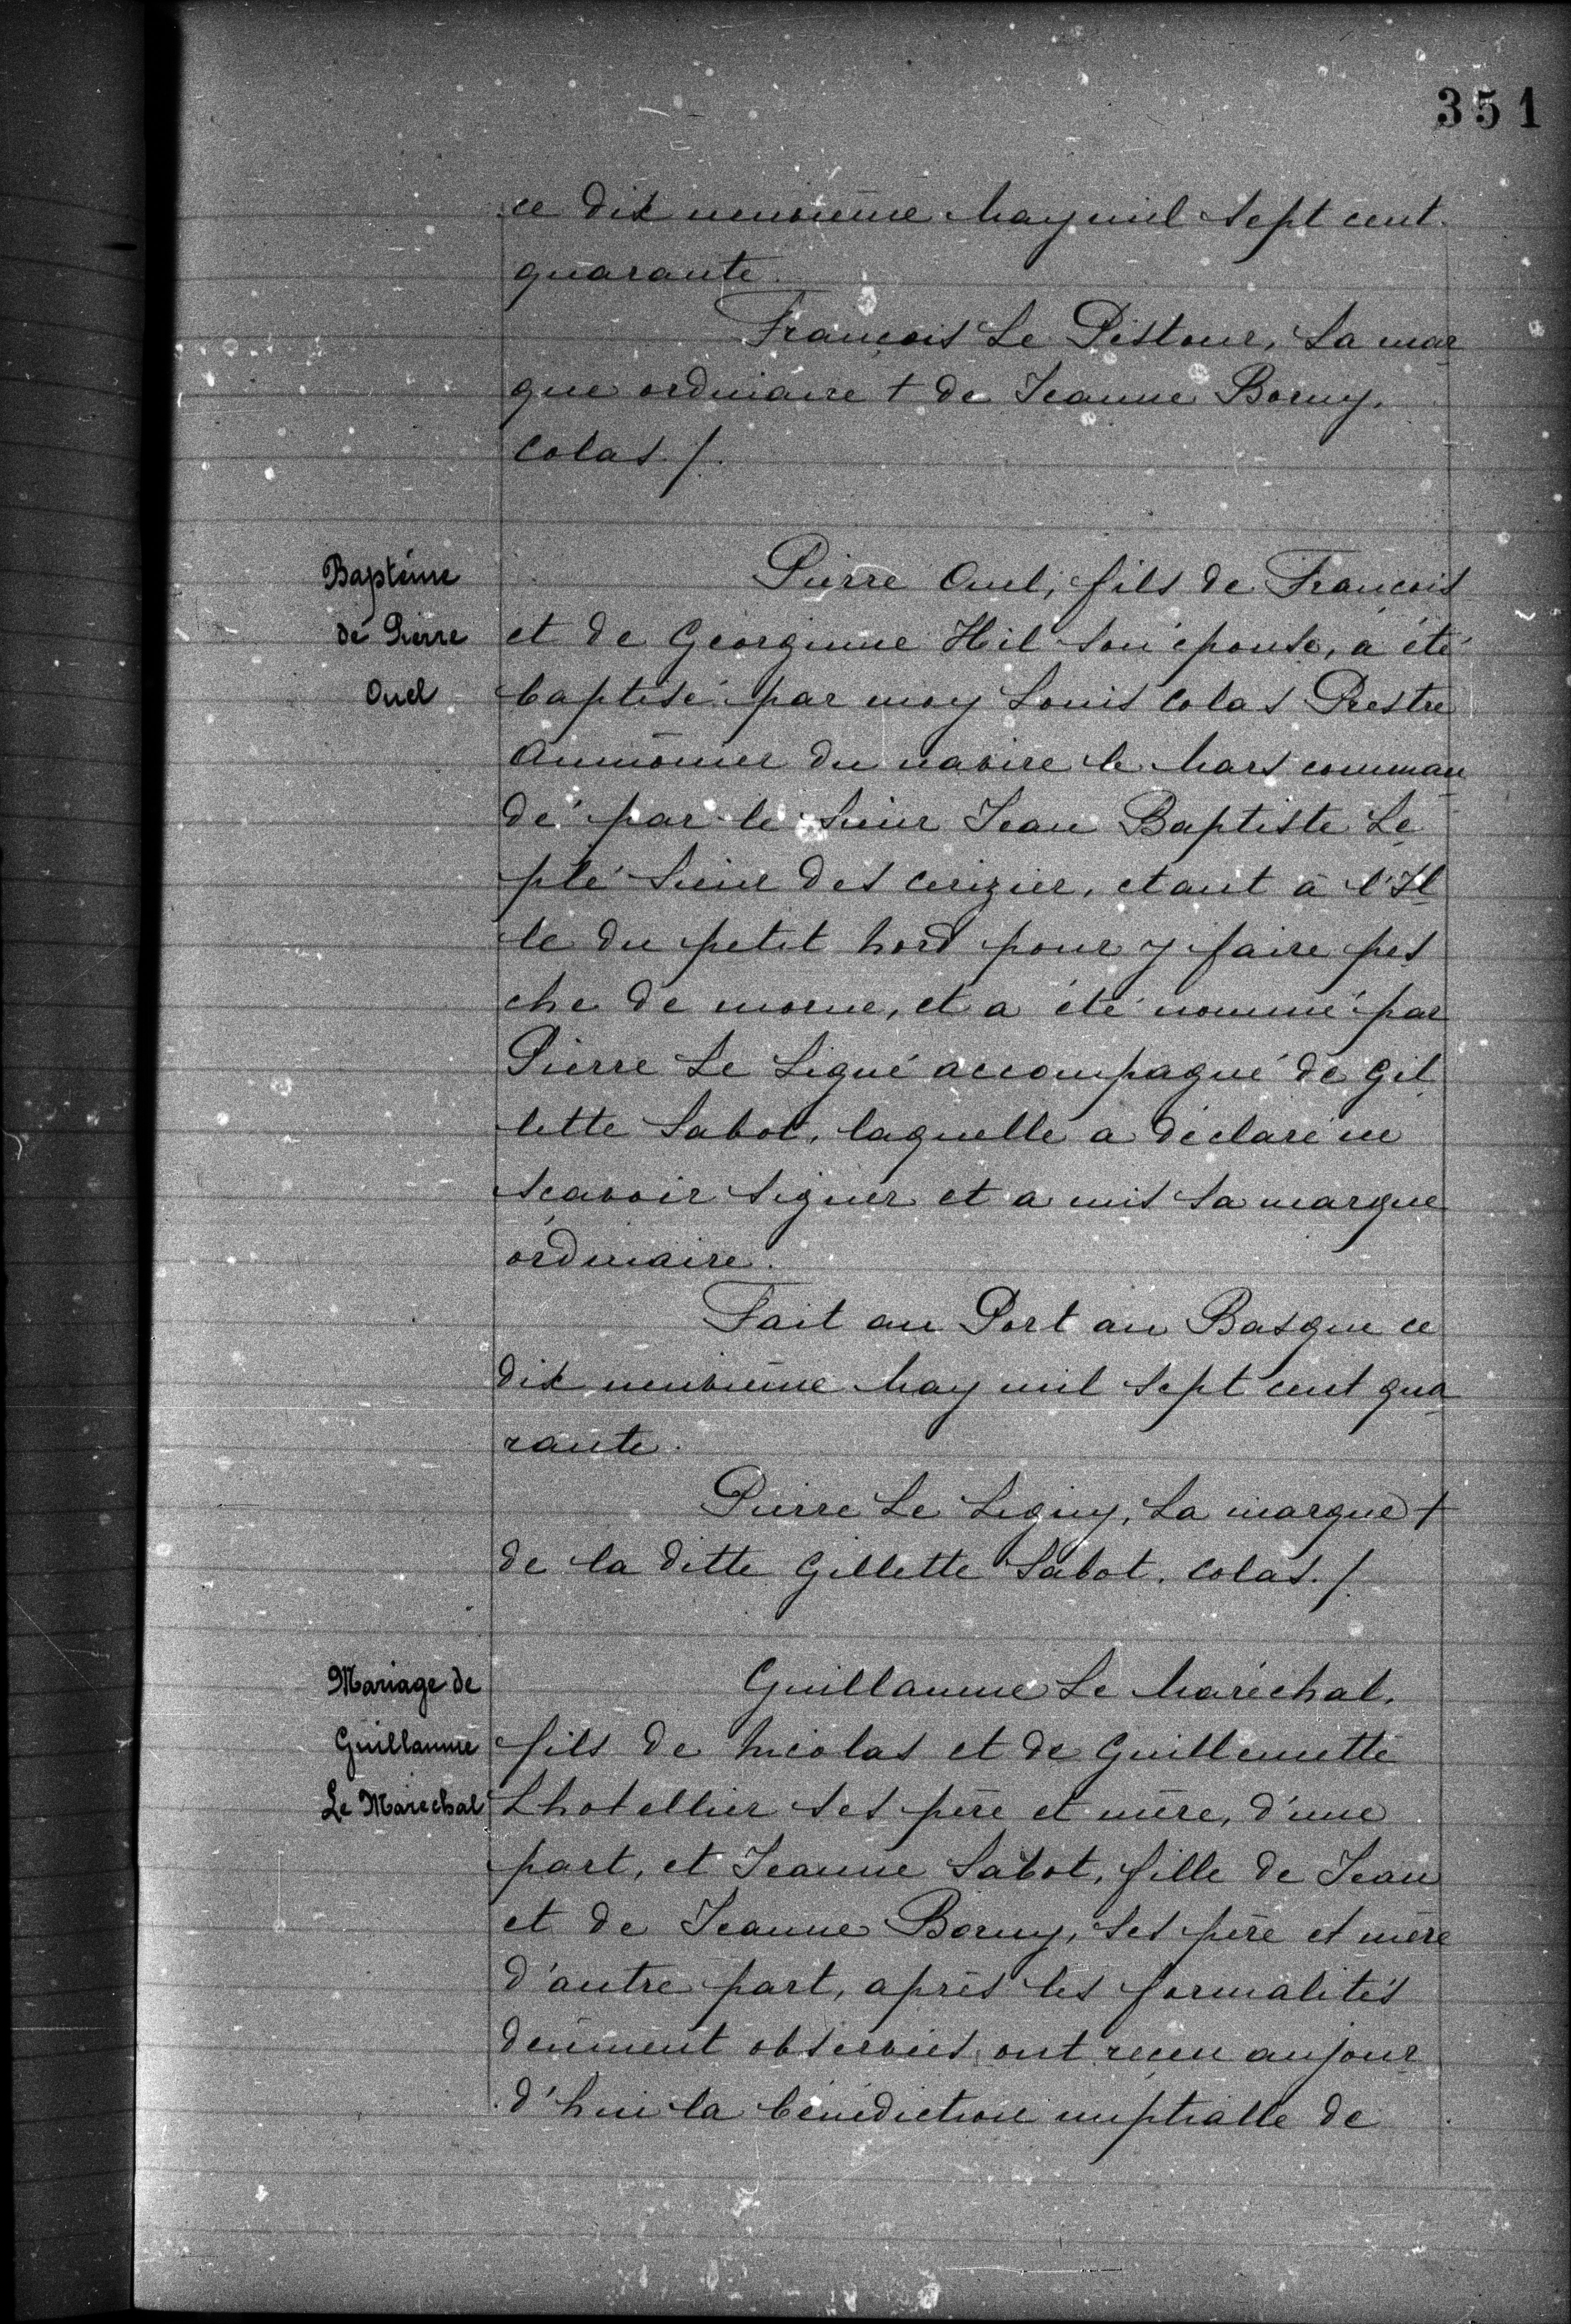 351
ce dix neuvième May mil sept cent
quarante.
François Le Pistour, la mar
que ordinaire + de Jeanne Borny,
Colas./.
Baptême
de Pierre
Ouel
Pierre Ouel, fils de François
et de Georginne Hil son épouse, a été
baptisé par moy Louis Colas Prestre
Aumônier du navire le Mars comman
dé par le sieur Jean Baptiste Le
plé sieur des Cerizier, etant à l'Il
le du petit Nord pour y faire pes
che de morue, et a été nommé par
Pierre Le Ligné accompagné de Gil
lette Sabot, laquelle a déclaré ne
sçavoir signer et a mis sa marque
ordinaire.
Fait au Port au Basque ce
dix neuvième May mil sept cent qua
rante.
Pierre Le Ligny, la marque +
de la ditte Gillette Sabot. Colas./.
Mariage de
Guillaume
Le Maréchal
Guillaume Le Maréchal,
fils de Nicolas et de Guillemette
Lhotellier ses père et mère, d'une
part, et Jeanne Sabot, fille de Jean
et de Jeanne Borny, ses père et mère
d'autre part, après les formalités
deument observées ont reçeu aujour
d'hui la bénédiction nuptialle de